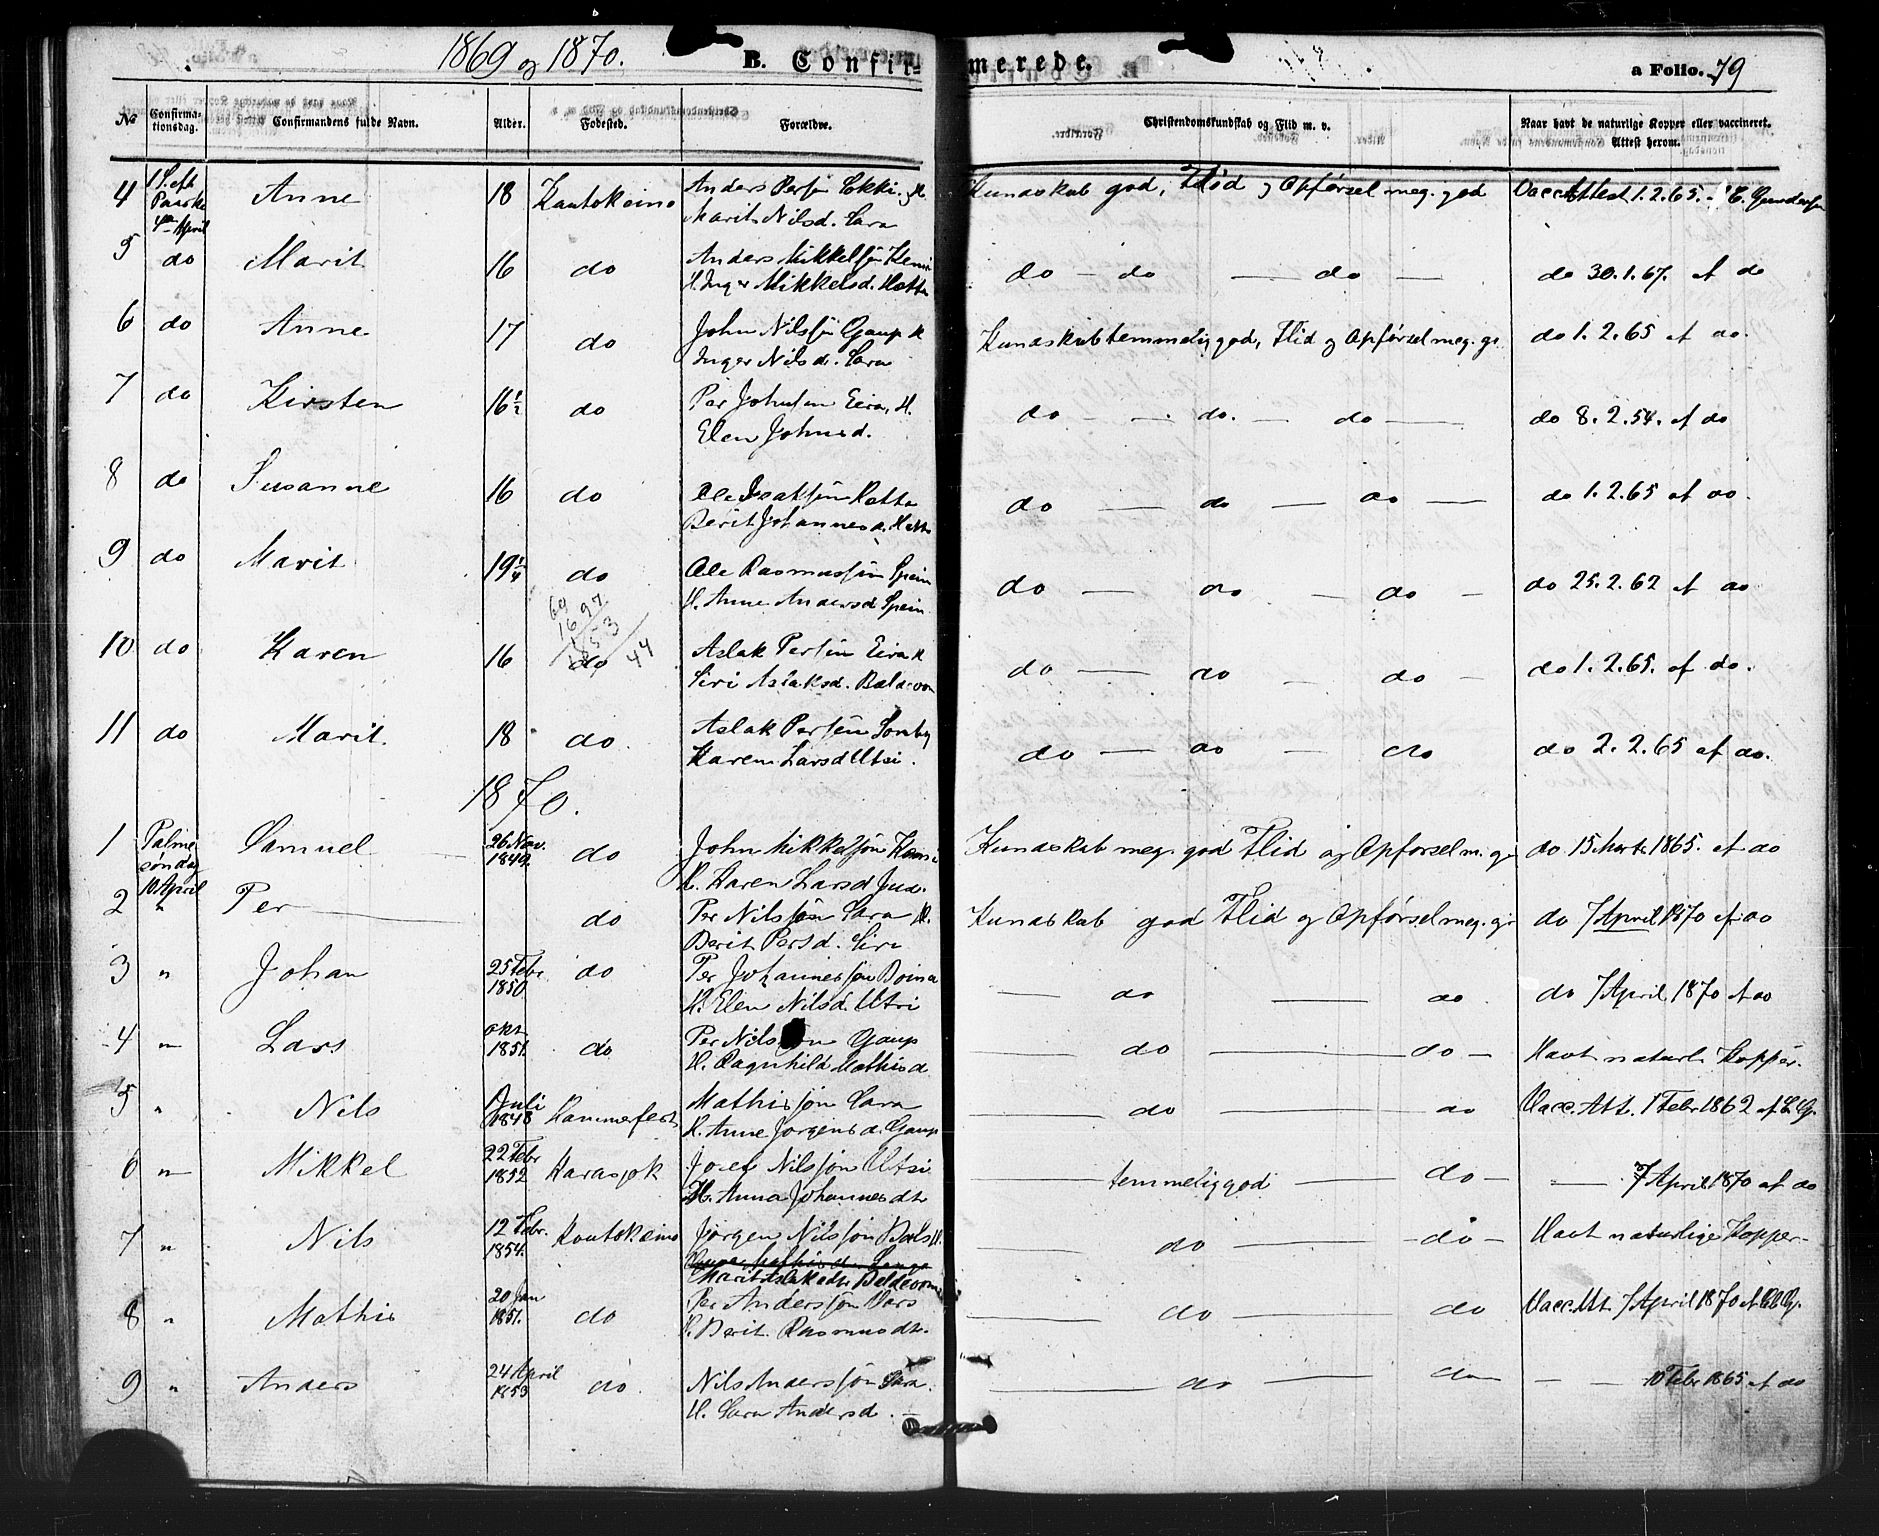 1869 og 1870.
B. Confir-
merede.
a Folio. 79
No
Confirma-
tionsdag.
Confirmandens fulde Navn.
Alder.
Fødested.
Forældre.
Christendomskundskab og Flid m. v.
Naar havt de naturlige Kopper eller vaccineret.
Attest herom.
4 1 S. eft Paaske 4de April Anne 18 Kautokeino Anders Persøn H. Kundskab god, Flid og Opførsel meg. god Vacc Attest 1.2.65.
Marit Nilsd. Sara
5 do Marit 16 do Anders Mikkelsøn do - do - do - do 30.1.67. af do
H. Inger Mikkelsd. Hætta
6 do Anne 17 do John Nilssøn Gaup H Kundskab temmelig god, Flid og Opførsel meg. g. do 1.2.65 af do.
Inger Nilsd. Sara
7 do Kirsten 16½ do Per Johnsøn Eira, H. do - do. - do - do 8.2.54. af do
Elen Johnsd.
8 do Susanne 16 do Ole Hætta do - do - do - do 1.2.65 af do.
Berit Johannesd. Hætta
9 do Marit 19¼ do Ole Rasmussøn Spein do - do - do - do 25.2.62 af do
H. Anne Andersd Spein
69
16 97
1853
44
10 do Karen 16 do Aslak Persøn Eira H do - do - do - do 1.2.65. af do.
Siri Aslaksd. Baldevon
11 do Marit. 18 do. Aslak Persøn Somby do - do - do do 2.2.65 af do.
Karen Larsd Utsi.
1870.
1 Palme søndag 10 April Samuel 26 Nov. 1849. do John Mikkelsøn Kundskab meg. god Flid og Opførsel m. g. do 15 Marts 1865. af do
H. Karen Larsd
2 " Per do Per Nilssøn Sara H. Kundskab god Flid og Opførsel meg. g. do 7 April 1870 af do
Berit Persd. Siri
3 " Johan 25 Febr 1850. do Per Johannessøn Boina - do - do. do 7 April 1870 af do
H. Elen Nilsd. Utsi
4 " Lars okt. 1851. do Per Nilssøn Gaup - do - do - Havt naturl. Kopper.
H. Ragnhild Mathisd
5 " Nils Juli 1848 Hammerfest Mathis søn Sara - do - do Vacc. Att. 1 Febr 1862 af
H. Anne Jørgensd. Gaup
6 " Mikkel 22 Febr 1852 Karasjok Josef Nilssøn Utsi - temmelig god - do - - 7 April 1870 af do
H. Anna Johannesdt.
7 " Nils 12 Febr. 1854. Kautokeino Jørgen Nilssøn Bals H. - do - do - Havt naturlige Kopper -
Marit Aslaksdt. Baldevon
8 " Mathis 20 Jan 1851. do Per Anderssøn Vars - do - do Vacc. Att. 7 April 1870 af
H. Berit Rasmusdt.
9 " Anders 24 April 1853 do Nils Anderssøn Sara. - do - do - - 10 Febr 1865 af do
H. Sara Andersd.